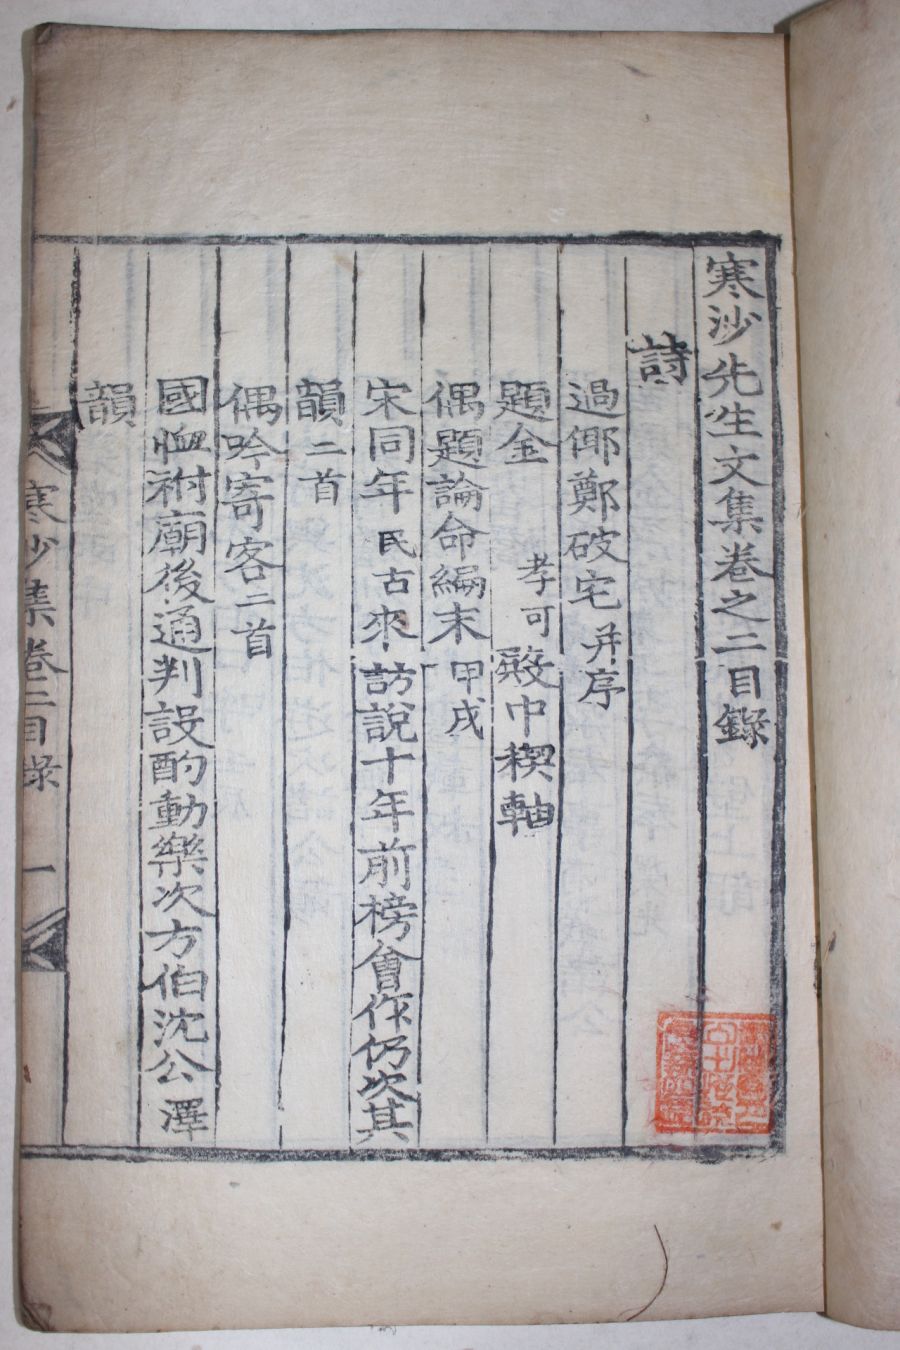 寒沙先生文集卷之二目錄
詩
過鄭破宅并序
題金孝可殹中稧軸
偶題論命編末甲戌
宋同年民古來訪說十年前榜會作仍次其
韻二首
偶吟寄客二首
國恤祔廟後通判設酌動樂次方伯沈公澤
韻
寒沙集卷二目錄 一